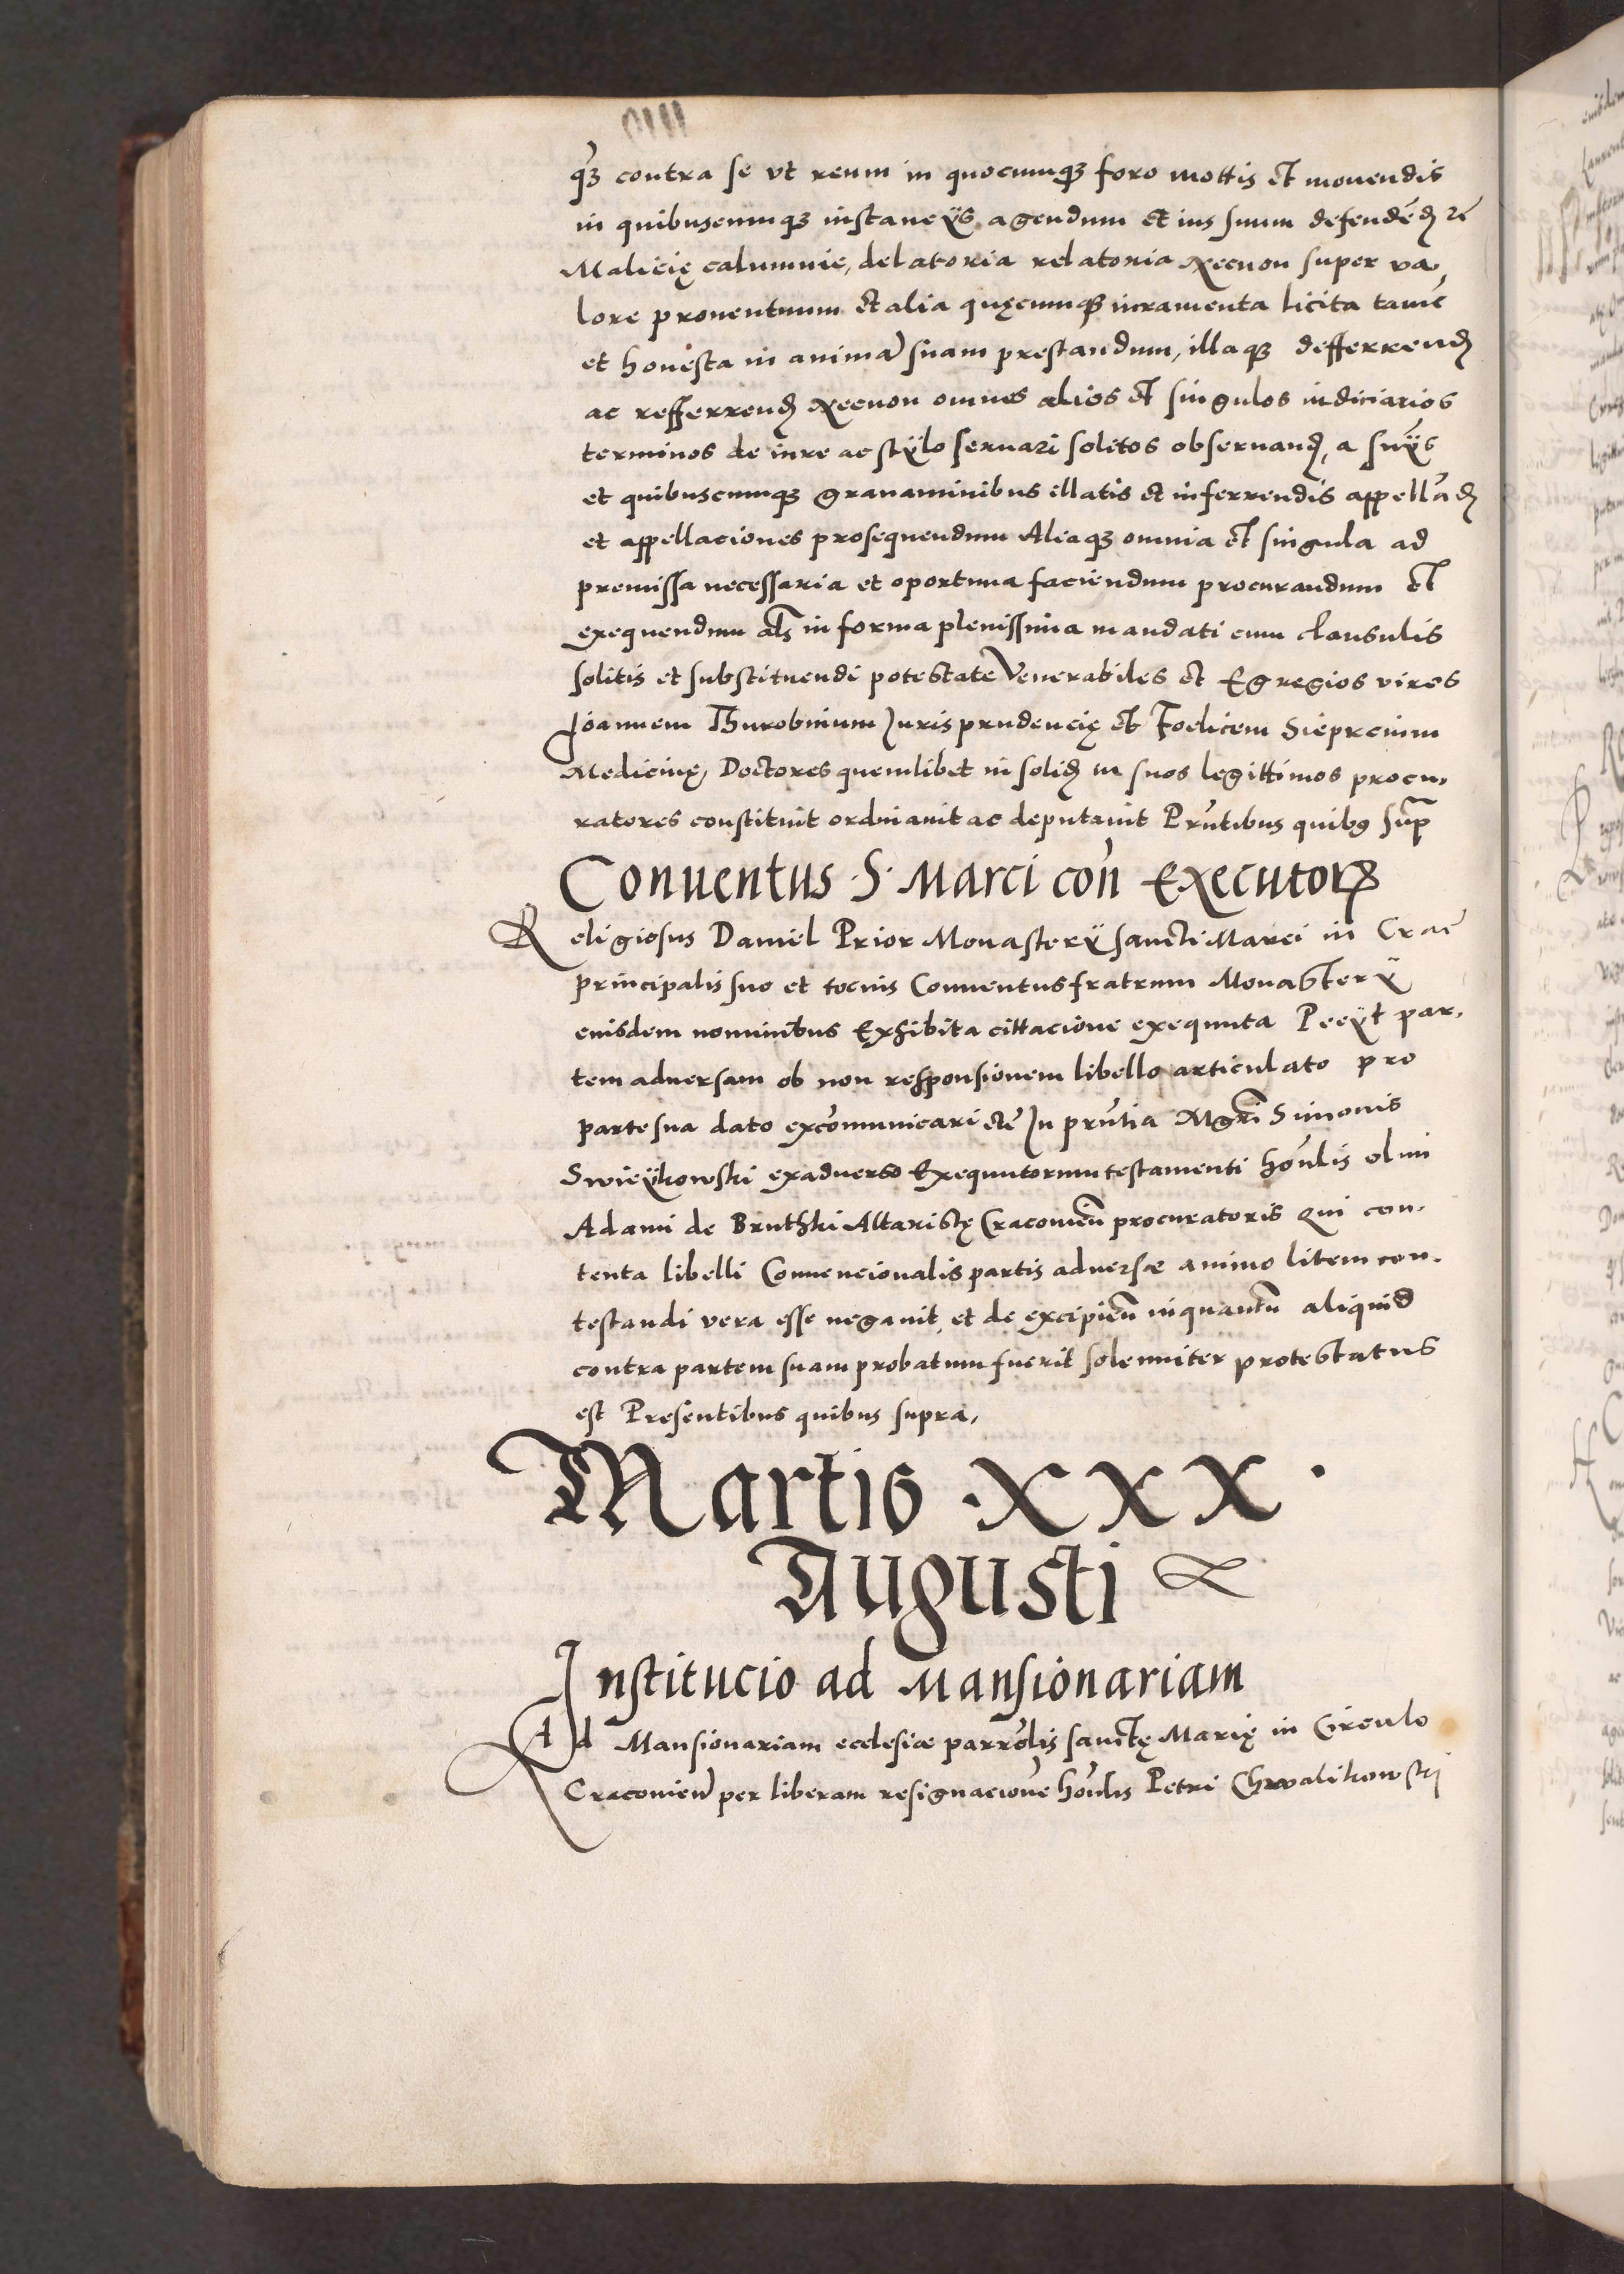 qꝫ contra se vt reum in quocumqꝫ foro mottis et mouendis
in quibuscumqꝫ instancÿs agendum et ius suum defendēd
Malicię calumnie, delatoria relatoria Necnon super va,
lore prouentuum et alia quęcumqꝫ iuramenta licita tamē
et honesta in animā suam prestandum, illaqꝫ defferrend
ac refferrend Necnon omnes alios et singulos iudiciarios
terminos de iure ac stÿlo seruari solitos obseruand, a suÿs
et quibuscumqꝫ grauaminibus illatis et inferrendis appellād
et appellaciones prosequendum Aliaqꝫ omnia et singula ad
premissa necessaria et oportuna faciendum procurandum et
exequendum als in forma plenissima mandati cum clausulis
solitis et substituendi potestate Venerabiles et Egregios viros
Joannem Thurobinium Jurisprudencię et Foelicem Sieprcium
Medicinę, Doctores quemlibet in solid in suos legittimos procu,
ratores constituit ordinauit ac deputauit Prntibus quibꝰ sup
Conuentus .S. Marci con Executorꝝ
Religiosus Daniel Prior Monasterÿ sancti Marci in Crac
principalis suo et tocius Conuentus fratrum Monasterÿ
eiusdem nominibus Exhibita cittacione exequuta Peeÿt par,
tem aduersam ob non responsionem libello articulato pro
parte sua dato excōmunicari etc In prntia Mgri Simonis
Swieÿkowski exaduerso Exequutorum testamenti honlis olim
Adami de Bruthki Altaristę Cracouien procuratoris Qui con-
tenta libelli Conuencionalis partis aduersæ animo litem con-
testandi vera esse negauit, et de excipien inquantū aliquid
contra partem suam probatum fuerit solenniter protestatus
est Presentibus quibus supra,
Martis .XXX.
Augusti
Institucio ad Mansionariam
Ad Mansionariam ecclesiæ parrolis sanctę Marię in Circulo
Cracouien per liberam resignacione honlis Petri Chwalikowski